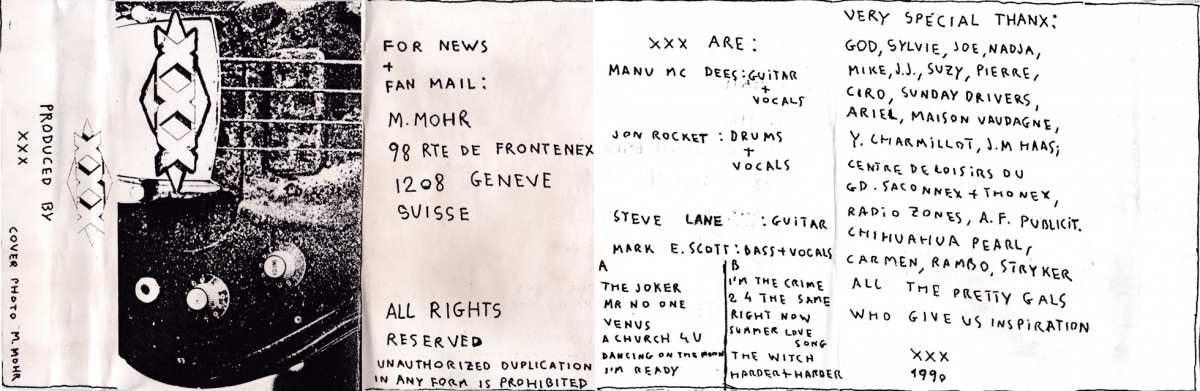 PRODUCED BY
XXX
COVER PHOTO M. MOHR
XXX
XXX
FOR NEWS
+
FAN MAIL:
M. MOHR
98 RTE DE FRONTENEX
1208 GENEVE
SUISSE
ALL RIGHTS
RESERVED
UNAUTHORIZED DUPLICATION
IN ANY FORM IS PROHIBITED
XXX ARE:
MANU MC DEES: GUITAR
+
VOCALS
JON ROCKET: DRUMS
+
VOCALS
STEVE LANE : GUITAR
MARK E. SCOTT: BASS + VOCALS
A
THE JOKER
MR NO ONE
VENUS
A CHURCH 4 U
DANCING ON THE MOON
I'M READY
B
I'M THE CRIME
2 4 THE SAME
RIGHT NOW
SUMMER LOVE
SONG
THE WITCH
HARDER + HARDER
VERY SPECIAL THANX:
GOD, SYLVIE, JOE, NADJA,
MIKE, J.J., SUZY, PIERRE,
CIRO, SUNDAY DRIVERS,
ARIEL, MAISON VAUDAGNE,
Y. CHARMILLOT, J.M HAAS;
CENTRE DE LOISIRS DU
GD. SACONNEX + THONEX,
RADIO ZONES, A. F. PUBLICIT.
CHIHUAHUA PEARL,
CARMEN, RAMBO, STRYKER
ALL THE PRETTY GALS
WHO GIVE US INSPIRATION
XXX
1990